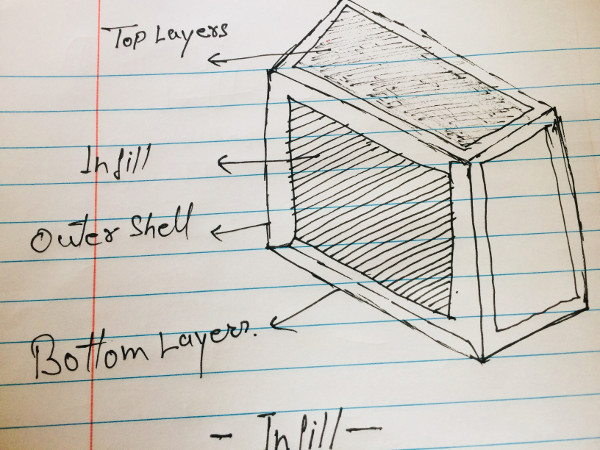 Top Layers
Infill
Outer Shell
Bottom Layers.
- Infill -